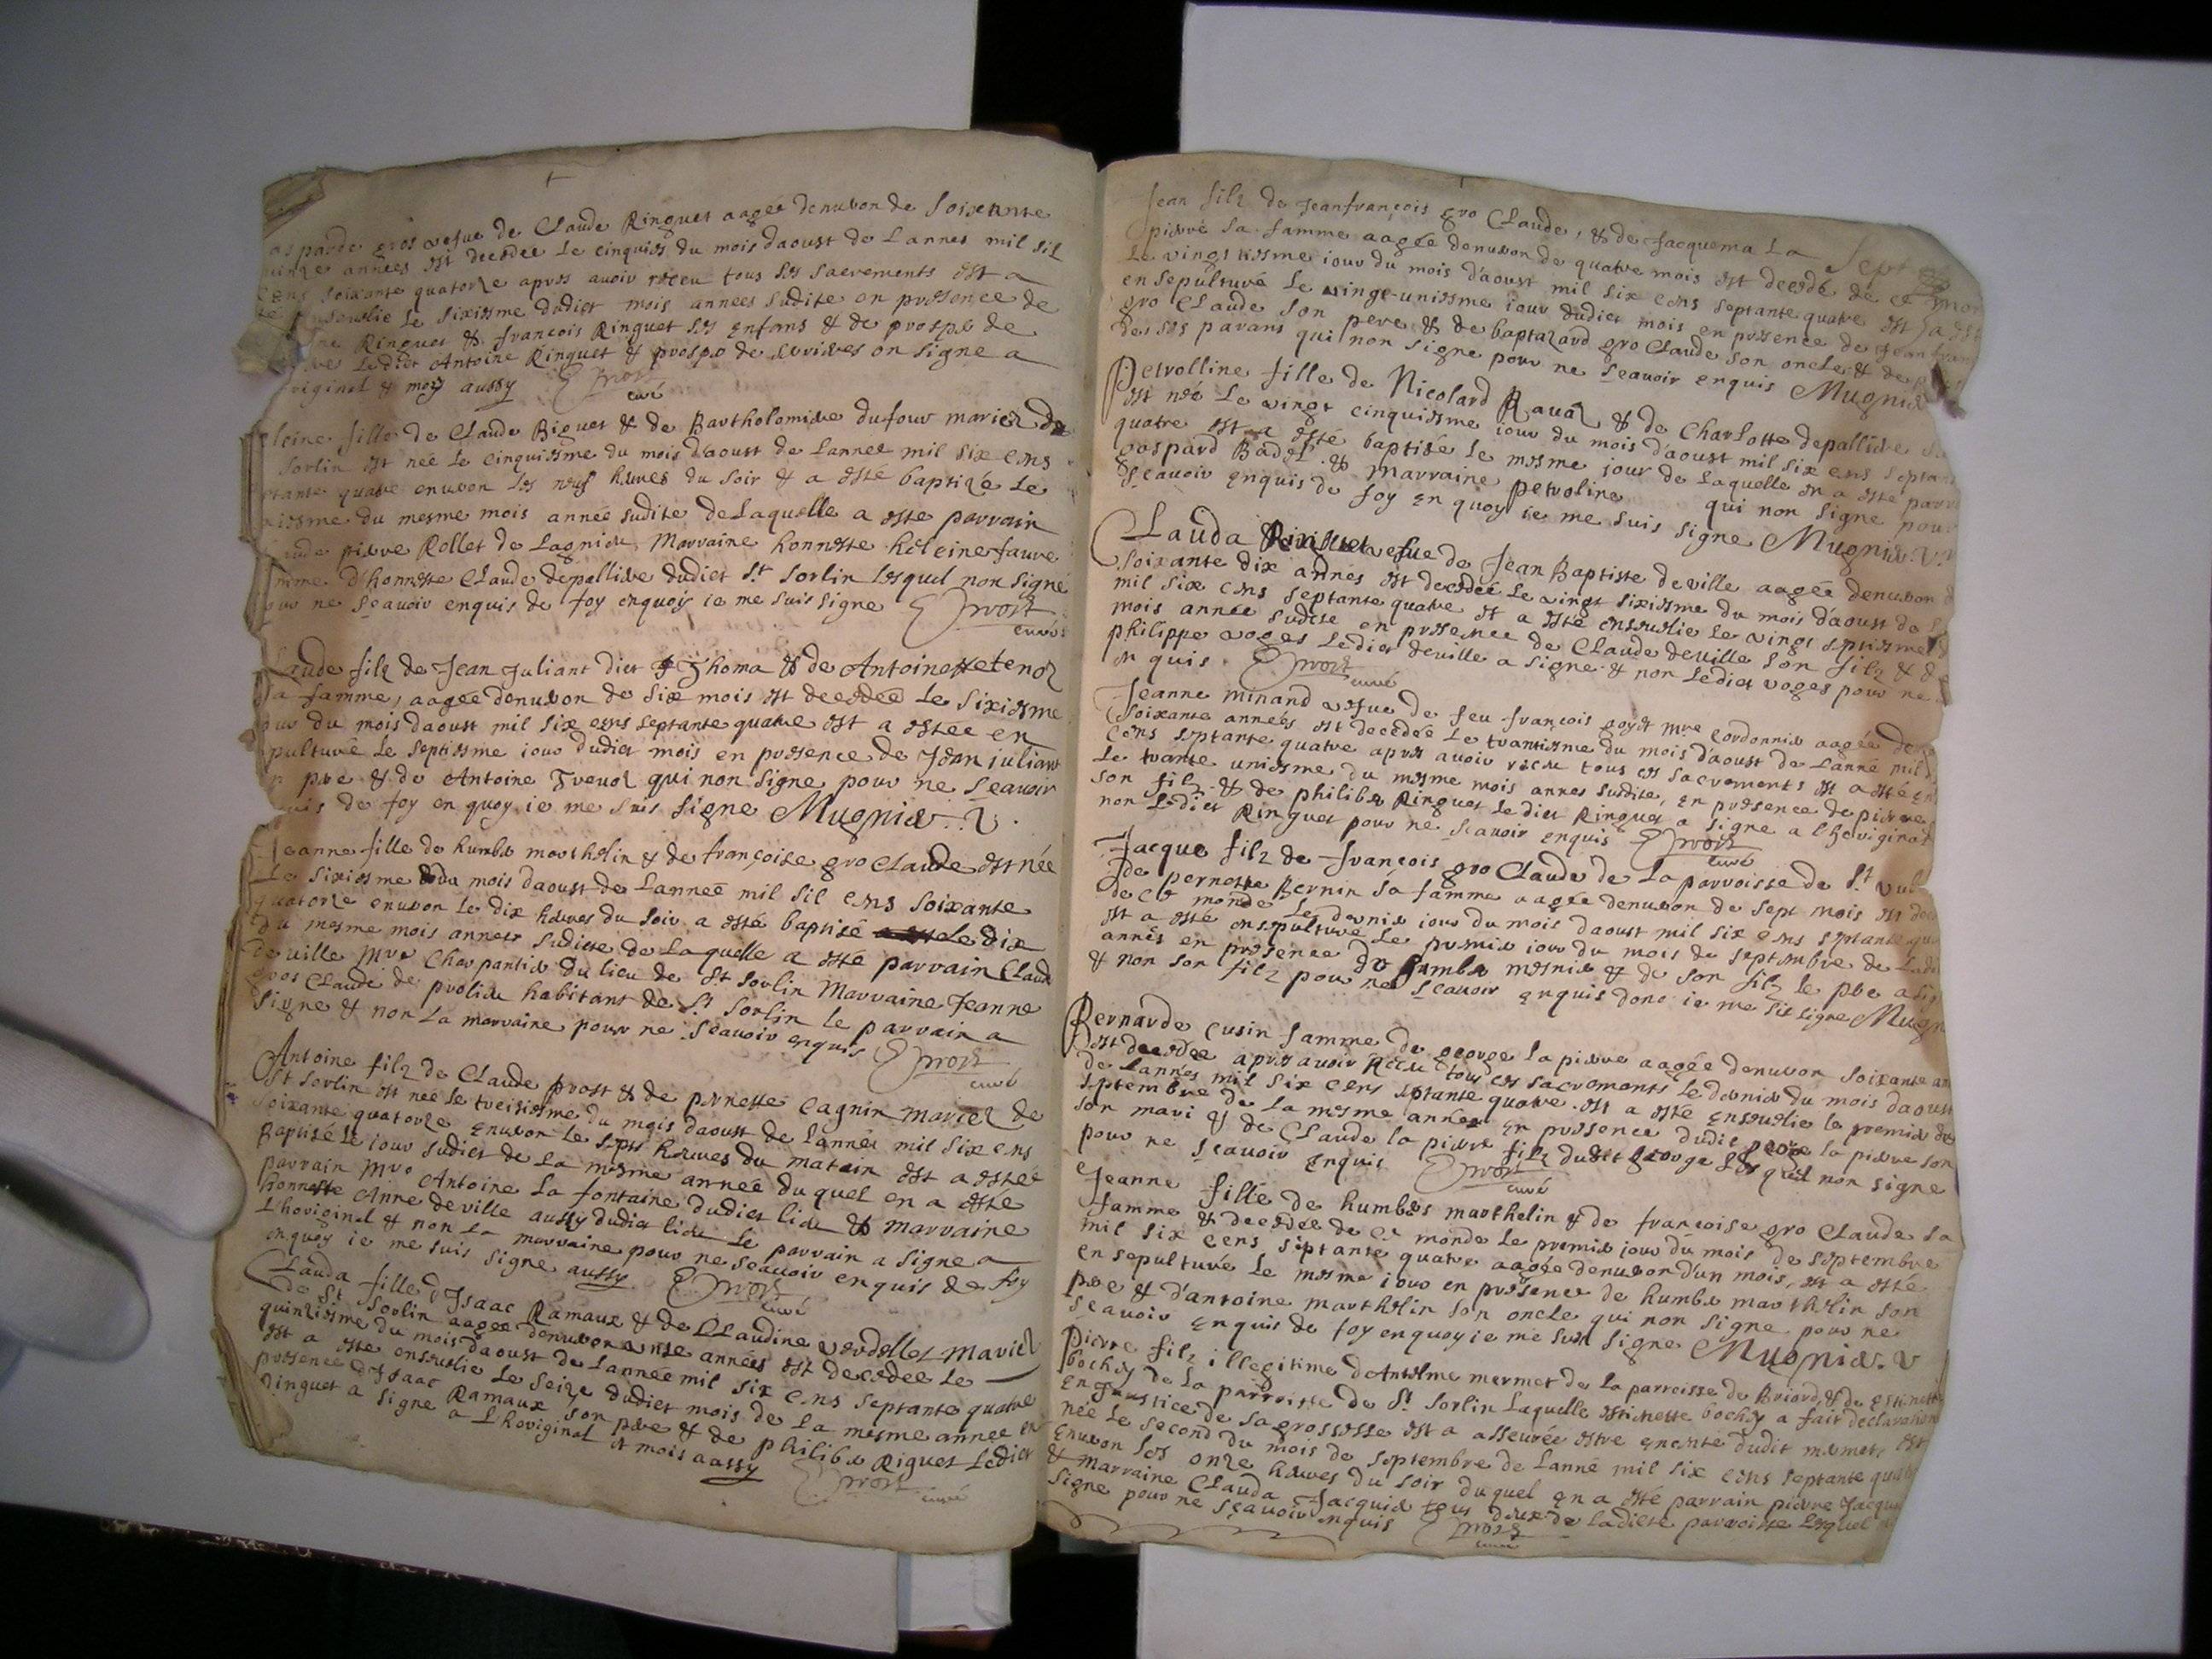 gros vefue de Claude Ringuet aagée denuiron de soixante
années est decedée le cinquies du mois daoust de Lannes mil sil
cens soixante quatorze apres auoir receu tous les sacrements est a
le sixiesme dudict mois annees sudite en presence de
Ringuet & francois Ringuet ses enfans & de prospe de
Ledict Antoine Ringuet & prospe de on signe a
& moy aussy Prost
curé
fille de Claude Biguet & de Bartholomiere dufour mariez de
Sorlin est née Le cinquiesme du mois daoust de Lannee mil six cens
quatre enuiron les neuf heures du soir & a esté baptizé Le
du mesme mois année sudite de Laquelle a esté parrain
pierre Rollet de Lagnieu, Marraine honneste heleine faure
d'honneste Claude depelliere dudict St Sorlin Lesquel non signé
pour ne sçauoir enquis de foy enquoy ie me suis signe Prost
curé
Laude filz de Jean Juliant dict Thoma & de Antoinette
sa famme, aagée denuiron de six mois est decedée Le sixiesme
iour du mois daoust mil six cens septante quatre est a estée en
sepulturé Le septiesme iour dudict mois en presence de Jean iuliant
pere & de Antoine qui non signe pour ne sçauoir
de foy en quoy ie me suis signe Mugnier. V.
Jeanne fille de humber marthelin & de françoise gro Claude est née
Le sixiesme du mois daoust de Lanneé mil sil cens soixante
quatorze enuiron le dix heures du soir a esté baptisé le dix
du mesme mois annees sudicte de Laquelle a esté parrain Claude
deville Mre Charpantier du lieu de St Sorlin Marraine Jeanne
gros Claude de prolieu habitant de St Sorlin le parrain a
signe & non La marraine pour ne sçauoir enquis Prost
curé
Antoine filz de Claude prost & de pernette Cagnin mariez de
St Sorlin est neé le treisiesme du mois daoust de Lannéa mil six cens
soixante quatorze enuiron Le sept heures du matain est a estee
Baptisé Le iour sudict de La mesme anneé duquel en a esté
parrain Mre Antoine La fontaine dudict lieu & marraine
honneste Anne deville aussy dudict lieu Le parrain a signe a
Lhoriginel & non La marraine pour ne sçauoir enquis de foy
enquoy ie me suis signe aussy Prost
curé
Clauda fille d'Isaac Ramaux & de CLaudine verdellet mariez
de St Sorlin aagée denuiron années est decedée Le
quinziesme du mois daoust de Lannée mil six cens septante quatre
est a esté enseuelie Le seize dudict mois de La mesme annee en
presence d'Isaac Ramaux son pere & de philiber Riguet Ledict
Ringuet a signe a Lhoriginel & mois aassy
Prost
curé
Jean filz de Jeanfrançois gro Claude, & de Jacquema La
pierre sa famme aagée denuiron de quatre mois est decedé de ce
Le vingt iesme iour du mois d'aoust mil six cens septante quatre est a esté
en sepulturé Le vingt-uniesme iour dudict mois en presence de Jean
gro Claude son pere & de baptazard gro Claude son oncle & de
des ses parans qui non signe pour ne sçauoir enquis Mugnier
Petrolline fille de Nicolard Rauaz & de Charlotte depalliere
est née Le vingt cinquiesme iour du mois d'aoust mil six cens
quatre est a esté baptisée Le mesme jour de Laquelle en a esté
gaspard Badel & marraine petroline qui non signe pour
sçauoir enquis de foy en quoy ie me suis signe Mugnier. V.
Clauda vefue de Jean Baptiste deville aagée denuiron
soixante dix annés est decedée Le vingt sixiesme du mois d'aoust de
mil six cens septante quatre est a esté enseuelie Le vingt septiesme
mois annee sudite en presence de Claude deville son filz & de
philippe voges Ledict deville a signe & non Ledict voges pour ne
en quis Prost
curé
Jeanne minand vefue de feu françois goyet mre Cordonnier aagée de
soixante anneés est decedée Le trantiesme du mois d'aoust de Lanné mil
cens septante quatre apres auoir receu tous ces sacrements est a esté
Le trante uniesme du mesme mois annes sudite, en presence de pierre
son filz & de philiber Ringuet Ledict Ringuet a signe a lhoriginal
non Ledict Ringuet pour ne sçauoir enquis Prost
curé
Jacque filz de françois gro Claude de La parroisse de St
de pernette Bernin sa famme aagée denuiron de sept mois est
de ce monde Le dernier iour du mois daoust mil six cens septante
est a esté ensepulturé Le premier iour du mois de septembre de
annés en presence de humber mesnier & de son filz le pere a
& non son filz pour ne sçauoir enquis donc ie me sis signe
Bernarde Cusin famme de george la pierre aagée denuiron soixante
est decedée apres auoir Receu tous ces sacremants Le dernier du mois daoust
de Lannés mil six cens septante quatre est a esté enseuelie le premier de
septembre de la mesme année en presence dudit george la pierre son
son mari & de Claude la pierre filz dudict george Lesquel non signe
pour ne sçauoir enquis Prost
curé
Jeanne fille de humbers marthelin & de françoise gro Claude sa
famme & decedée de ce monde Le premier iour du mois de septembre
mil six cens septante quatre aagée denuiron d'un mois, est a esté
en sepulturé Le mesme iour en presence de humber marthelin son
pere & d'antoine marthelin son oncle qui non signe pour ne
sçauoir enquis de foy enquoy ie me suis signe Mugnier. V
Pierre filz illegitime d'Antelme mermet de la parroisse de Briord, & de
bochey de La parroisse de St Sorlin Laquelle estienette bochey a fait declaration
en Justice de sa grossesse est a asseurée estre encinte dudit mermet est
née Le second du mois de septembre de Lanné mil six cens septante
enuiron Les onze heures du soir duquel en a esté parrain pierre
& marraine Clauda Jacquier tous deux de Ladicte parroisse Lesquel
signe pour ne sçauoir enquis Prost
curé